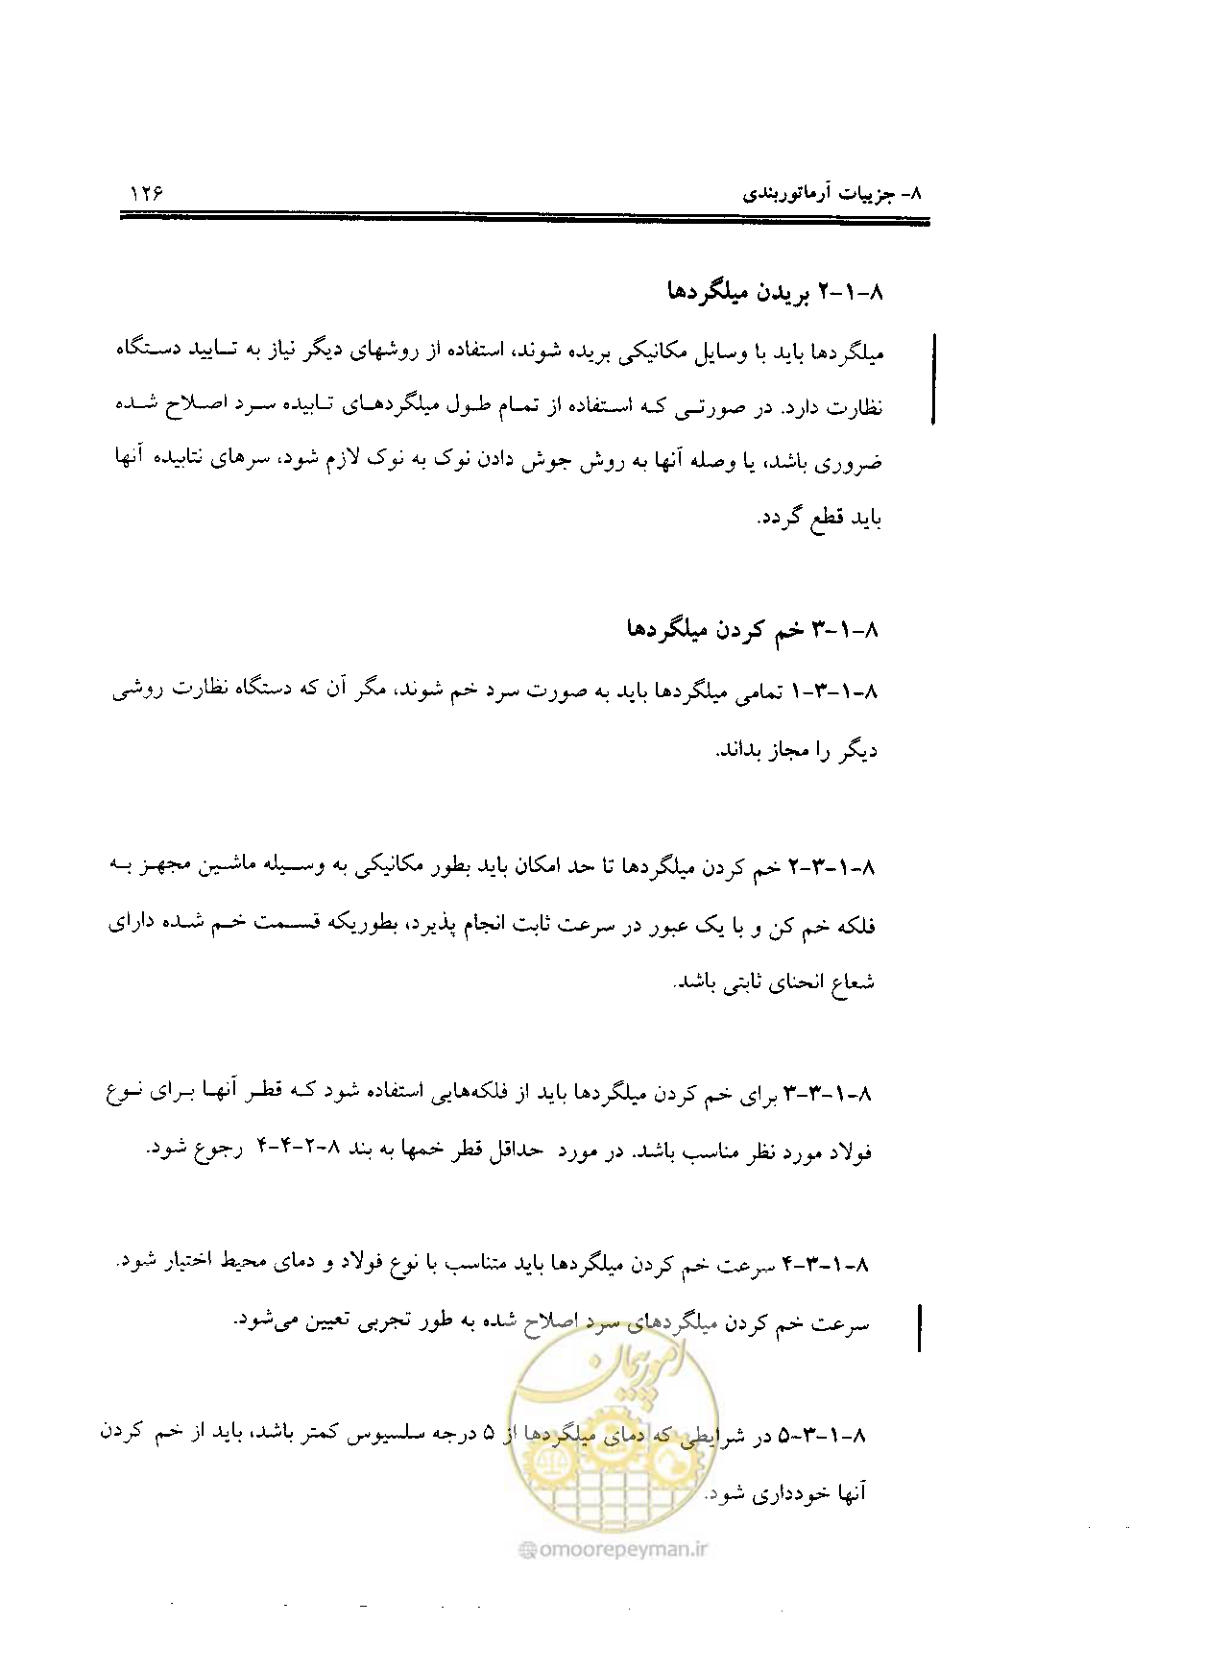 ۸- جزییات آرماتوربندی ۱۲۶
۸-۱-۲ بریدن میلگردها
میلگردها باید با وسایل مکانیکی بریده شوند، استفاده از روشهای دیگر نیاز به تایید دستگاه
نظارت دارد. در صورتی که استفاده از تمام طول میلگردهای تابیده سرد اصلاح شده
ضروری باشد، یا وصله آنها به روش جوش دادن نوک به نوک لازم شود، سرهای نتابیده آنها
باید قطع گردد.
۸-۱-۳ خم کردن میلگردها
۸-۱-۳-۱ تمامی میلگردها باید به صورت سرد خم شوند، مگر آن که دستگاه نظارت روشی
دیگر را مجاز بداند.
۸-۱-۳-۲ خم کردن میلگردها تا حد امکان باید بطور مکانیکی به وسیله ماشین مجهز به
فلکه خم کن و با یک عبور در سرعت ثابت انجام پذیرد، بطوریکه قسمت خم شده دارای
شعاع انحنای ثابتی باشد.
۸-۱-۳-۳ برای خم کردن میلگردها باید از فلکه‌هایی استفاده شود که قطر آنها برای نوع
فولاد مورد نظر مناسب باشد. در مورد حداقل قطر خمها به بند ۸-۲-۴-۴ رجوع شود.
۸-۱-۳-۴ سرعت خم کردن میلگردها باید متناسب با نوع فولاد و دمای محیط اختیار شود.
سرعت خم کردن میلگردهای سرد اصلاح شده به طور تجربی تعیین می‌شود.
۸-۱-۳-۵ در شرایطی که دمای میلگردها از ۵ درجه سلسیوس کمتر باشد، باید از خم کردن
آنها خودداری شود.
امور پیمان
@omoorepeyman.ir